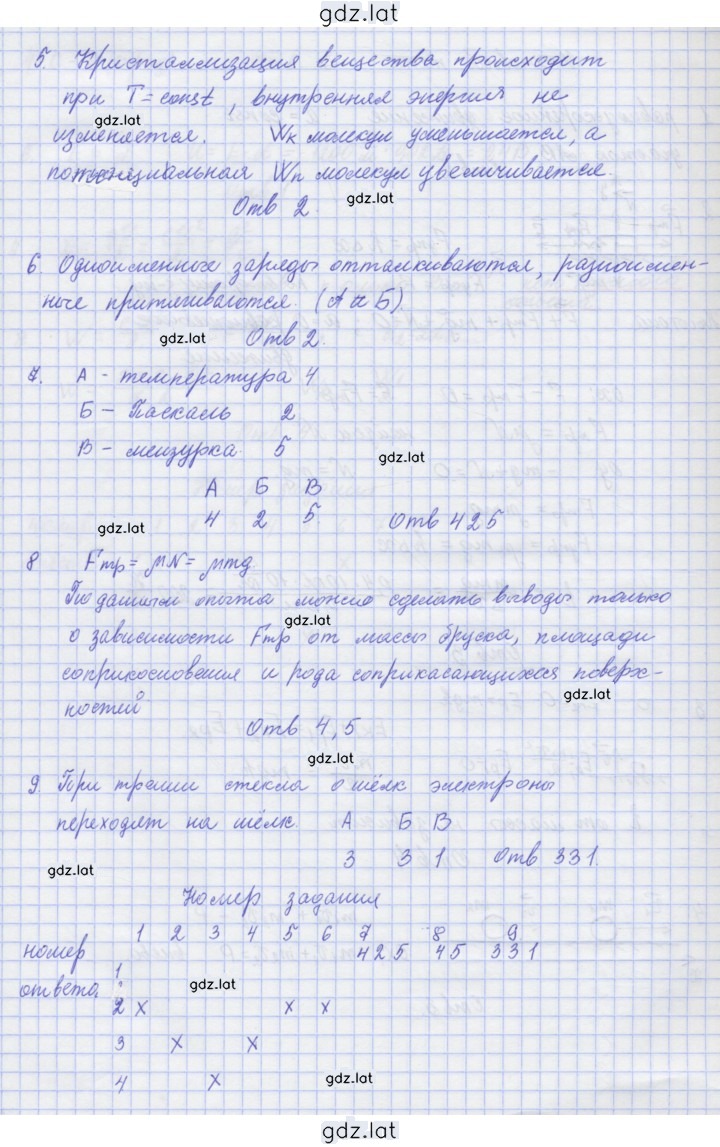 gdz.lat
5. Кристаллизация вещества происходит
при T = const, внутренняя энергия не
gdz.lat
изменяется. Wк молекул уменьшается, а
потенциальная Wп молекул увеличивается.
gdz.lat
Отв 2.
6. Одноименные заряды отталкиваются, разноимен-
ные притягиваются. (А и Б).
gdz.lat
Отв 2.
7. А - температура 4
Б - Паскаль 2
В - мензурка. 5
gdz.lat
А Б В
4 2 5. Отв 425
gdz.lat
8 Fтр = μN = μmg.
По данным опыта можно сделать выводы только
gdz.lat
о зависимости Fтр от массы бруска, площади
соприкосновения и рода соприкасающихся поверх-
gdz.lat
ностей
Отв 4,5
gdz.lat
9. При трении стекла о шёлк электроны
переходят на шёлк. А Б В
3 3 1. Отв 331.
gdz.lat
Номер задания
1 2 3 4 5 6 7 8 9
номер 425 45 331
ответа. 1
gdz.lat
2 х х х
3 х х
4 х
gdz.lat
gdz.lat